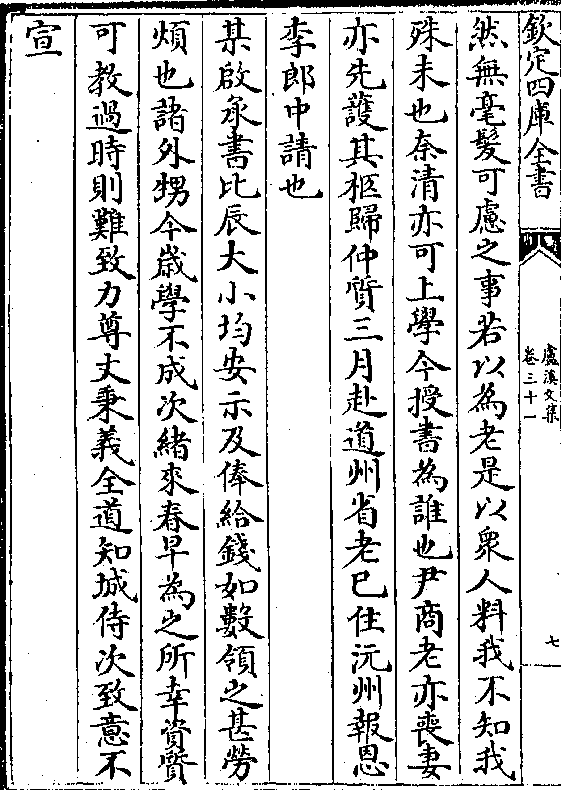 欽定四庫全書
盧溪文集
卷三十一
七
然無毫髮可慮之事若以為老是以衆人料我不知我
殊未也奈清亦可上學今授書為誰也尹商老亦喪妻
亦先護其柩歸仲質三月赴道州省老已住沅州報恩
李郎中請也
某啟承書比辰大小均安示及俸給錢如數領之甚勞
煩也諸外甥今歲學不成次緒來春早為之所幸資質
可教過時則難致力尊丈秉義全道知城侍次致意不
宣